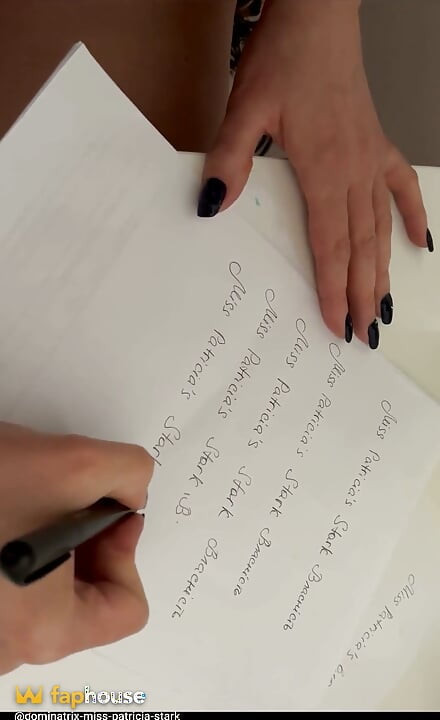 Miss Patricia's
Miss Patricia's Stark Власність
Miss Patricia's Stark Власність
Miss Patricia's Stark Власність
Miss Patricia's Stark "В.
Miss Patricia's Stark
faphouse
@dominatrix-miss-patricia-stark